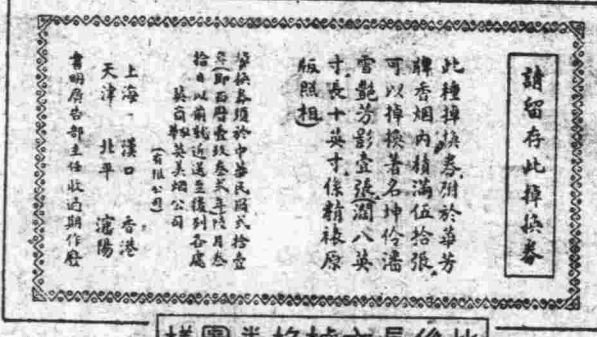 請留存此掉換券
此種掉換券附於華芳
牌香烟內積滿伍拾張
可以掉換著名坤伶潘
雪艷芳影壹張濶八英
寸長十英寸係精裱原
版照相
掉換券須於中華民國弍拾壹
年(即西曆壹玖叁弍年)陸月叁
拾日以前就近送至後列各處
英商英美烟公司
(有限公司)
上海 漢口 香港
天津 北平 瀋陽
書明廣告部主任收過期作廢